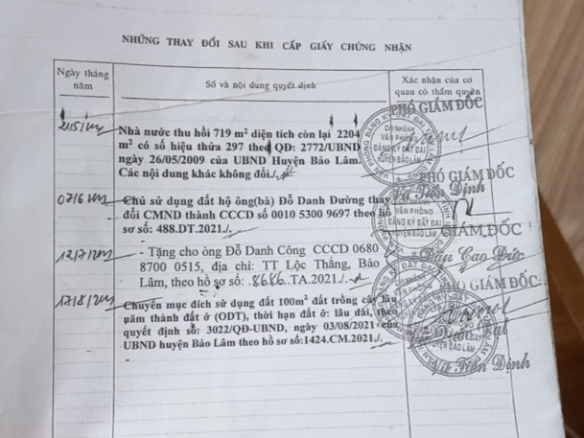 NHỮNG THAY ĐỔI SAU KHI CẤP GIẤY CHỨNG NHẬN
Ngày tháng năm
Số và nội dung quyết định
Xác nhận của cơ quan có thẩm quyền
Nhà nước thu hồi 719 m² diện tích còn lại 2204
m² có số hiệu thửa 297 theo QĐ: 2772/UBND
ngày 26/05/2009 của UBND Huyện Bảo Lâm.
Các nội dung khác không đổi./.
PHÓ GIÁM ĐỐC
CHI NHÁNH
VĂN PHÒNG
ĐĂNG KÝ ĐẤT ĐAI
HUYỆN BẢO LÂM
Vũ Trần Định
Chủ sử dụng đất hộ ông(bà) Đỗ Danh Đường thay
đổi CMND thành CCCD số 0010 5300 9697 theo hồ
sơ số: 488.DT.2021./.
PHÓ GIÁM ĐỐC
VĂN PHÒNG
ĐĂNG KÝ ĐẤT ĐAI
- Tặng cho ông Đỗ Danh Công CCCD 0680
8700 0515, địa chỉ: TT Lộc Thắng, Bảo
Lâm, theo hồ sơ số: 8686.TA.2021./.
GIÁM ĐỐC
Cao Đức
PHÓ GIÁM ĐỐC
Chuyển mục đích sử dụng đất 100m² đất trồng cây lâu
năm thành đất ở (ODT), thời hạn đất ở: lâu dài, theo
quyết định số: 3022/QĐ-UBND, ngày 03/08/2021 của
UBND huyện Bảo Lâm theo hồ sơ số:1424.CM.2021./.
Vũ Trần Định